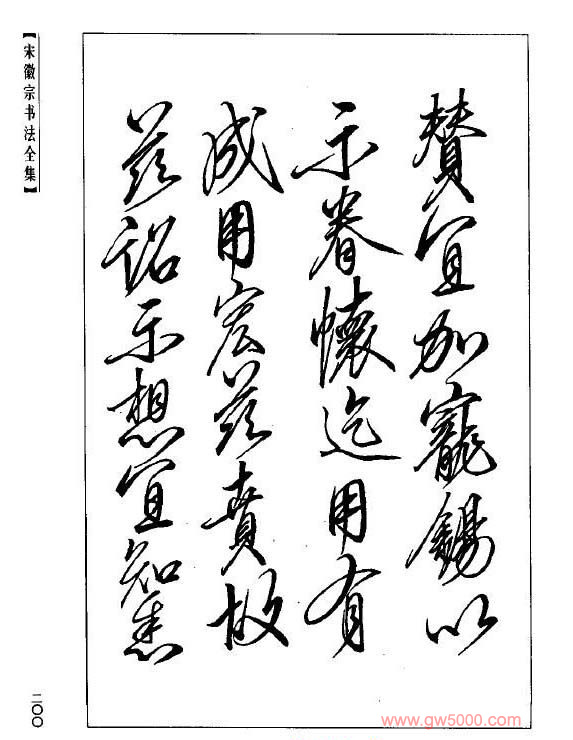 【宋徽宗书法全集】
赞宜加寵錫以
示眷懷迄用有
成用宏兹賁故
兹詔示想宜知悉
二〇〇
www.gw5000.com